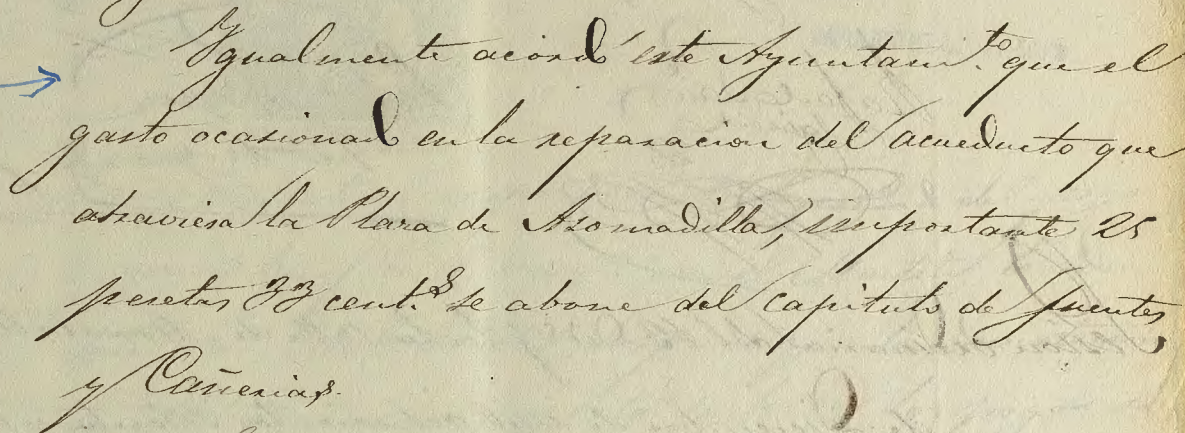 Ygualmente acordó este Ayuntam.to que el
gasto ocasionado en la reparacion del acueducto que
atraviesa la Plaza de Asomadilla, importante 25
pesetas 33 cent.s se abone del capitulo de fuentes
y Cañerias.